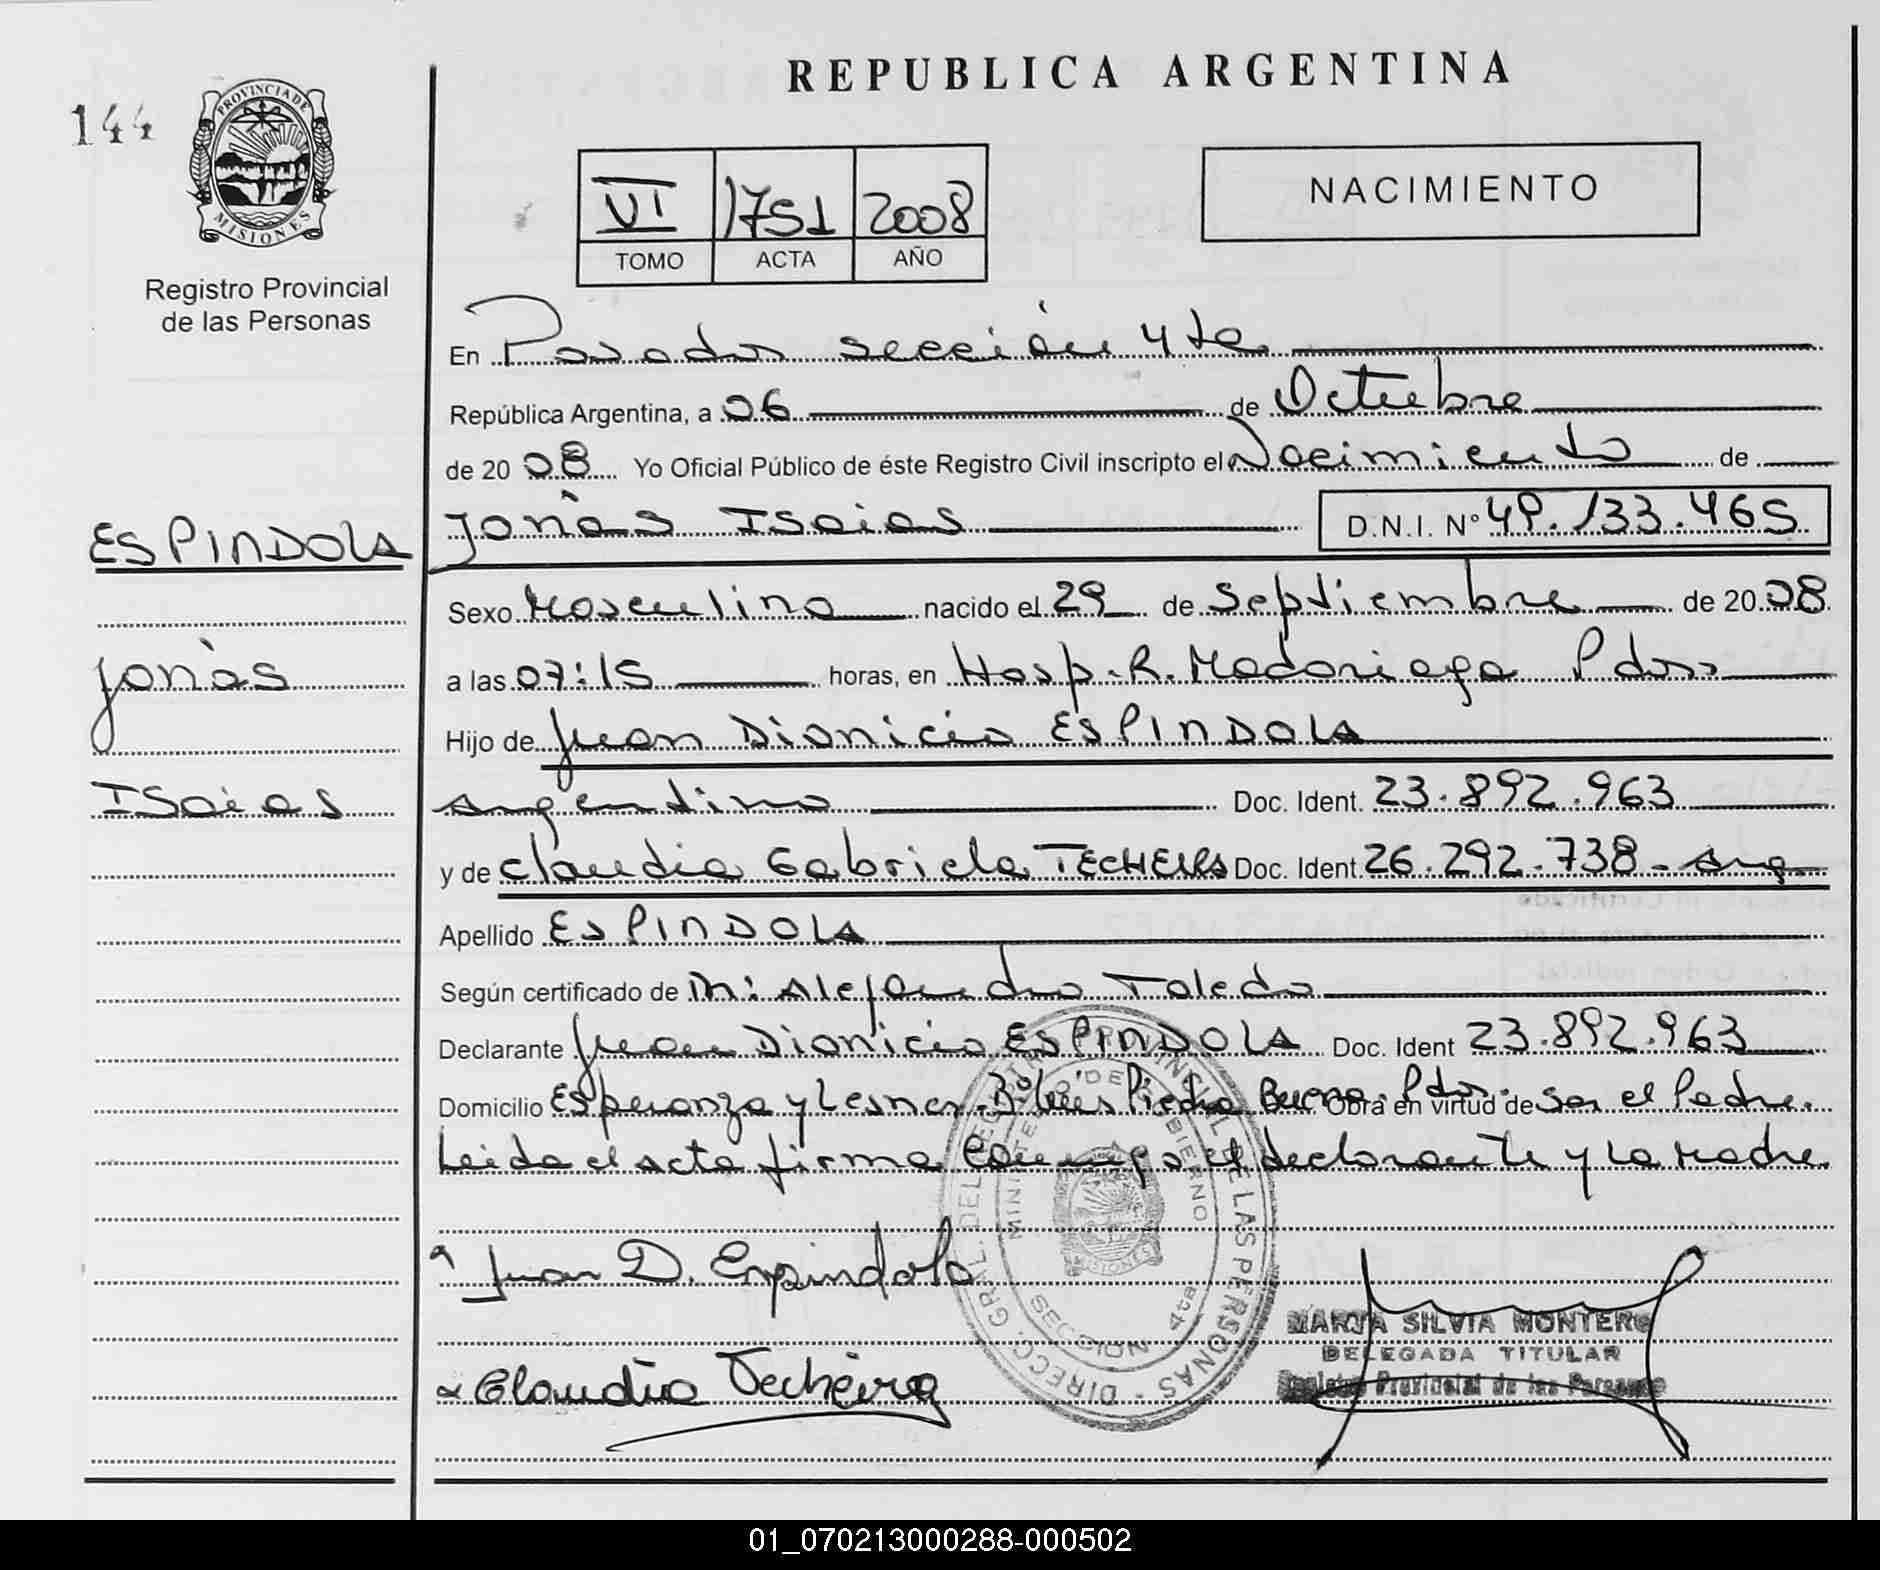 REPUBLICA ARGENTINA
144
PROVINCIA DE
MISIONES
Registro Provincial
de las Personas
VI 1751 2008
TOMO ACTA AÑO
NACIMIENTO
En Posadas sección 4ta
República Argentina, a 06 de Octubre
de 2008 Yo Oficial Público de éste Registro Civil inscripto el Nacimiento de
ESPINDOLA
Jonás Isaias D.N.I. Nº 49.133.465
Sexo Masculino nacido el 29 de Septiembre de 2008
Jonás
a las 07:15 horas, en Hosp. R. Madariaga Pdas
Hijo de Juan Dionicio ESPINDOLA
Isaias
Argentino Doc. Ident. 23.892.963
y de Claudia Gabriela Doc. Ident. 26.292.738 - Arg
Apellido ESPINDOLA
Según certificado de Alejandro Toledo
Declarante Juan Dionicio ESPINDOLA Doc. Ident 23.892.963
Domicilio Esperanza y Piedra Buena - Pdas. Obra en virtud de ser el Padre.
Leida el acta firma conmigo el declarante y la Madre.
DIRECC. GRAL. DEL REGISTRO PROVINCIAL DE LAS PERSONAS
MINISTERIO DE GOBIERNO
MISIONES
SECCION 4ta
Juan D. Espindola
MARTA SILVIA MONTERO
DELEGADA TITULAR
Registro Provincial de las Personas
Claudia Techeira
01_070213000288-000502